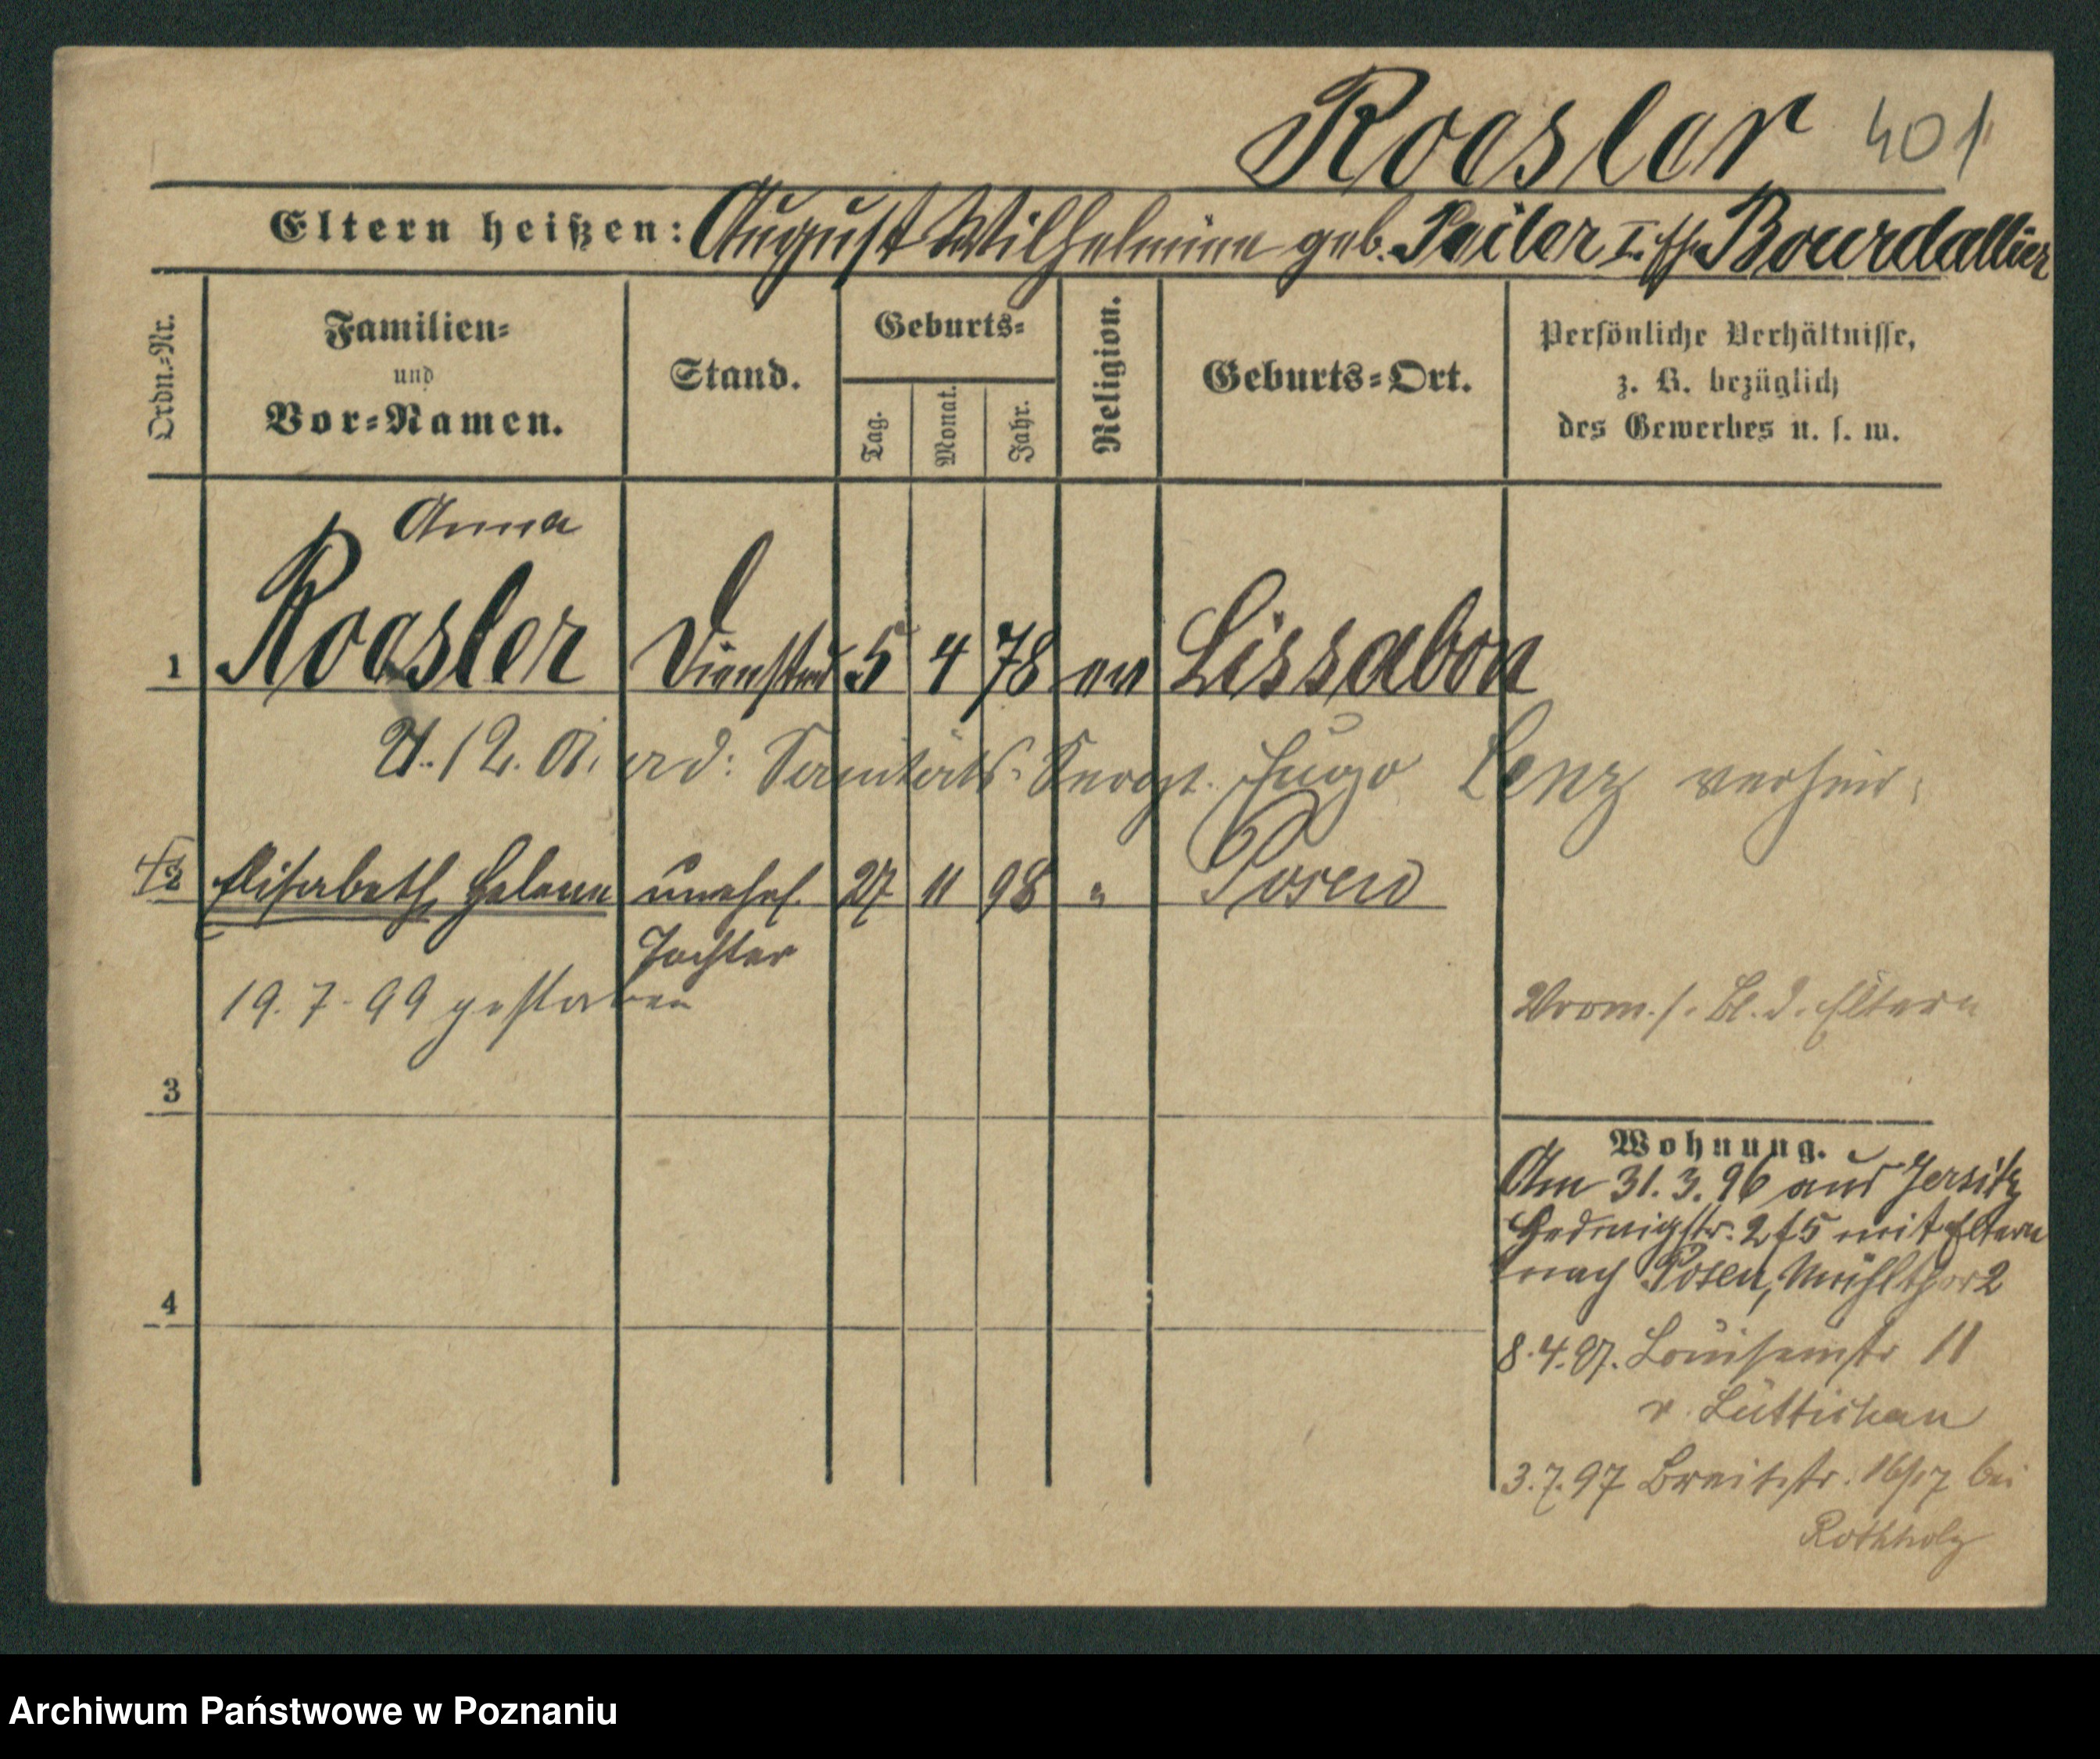 Roesler 401
Eltern heißen: August Wilhelmine geb. Seiler I. Eh. Bourdallier
Ordn.-Nr.
Familien-
und
Vor-Namen.
Stand.
Geburts-
Tag.
Monat.
Jahr.
Religion.
Geburts-Ort.
Persönliche Verhältnisse,
z. B. bezüglich
des Gewerbes u. s. w.
Anna
1 Roesler Dienstmd 5 4 78 ev Lissabon
21.12.01. a. d. Sanitäts-Sergt. Hugo Lenz verheir.
2 Elisabeth Helene unehel. 27 11 98 " Posen
Tochter
19.7.99 gestorben
Vorm. s. Bl. d. Eltern
3
Wohnung.
Am 31.3.96 aus Jersitz
Hedwigstr. 2/5 mit Eltern
nach Posen, Mühlthor 2
4
8.4.97. Louisenstr 11
v. Lüttichau
3.7.97 Breitestr. 16/17 bei
Rothholz
Archiwum Państwowe w Poznaniu